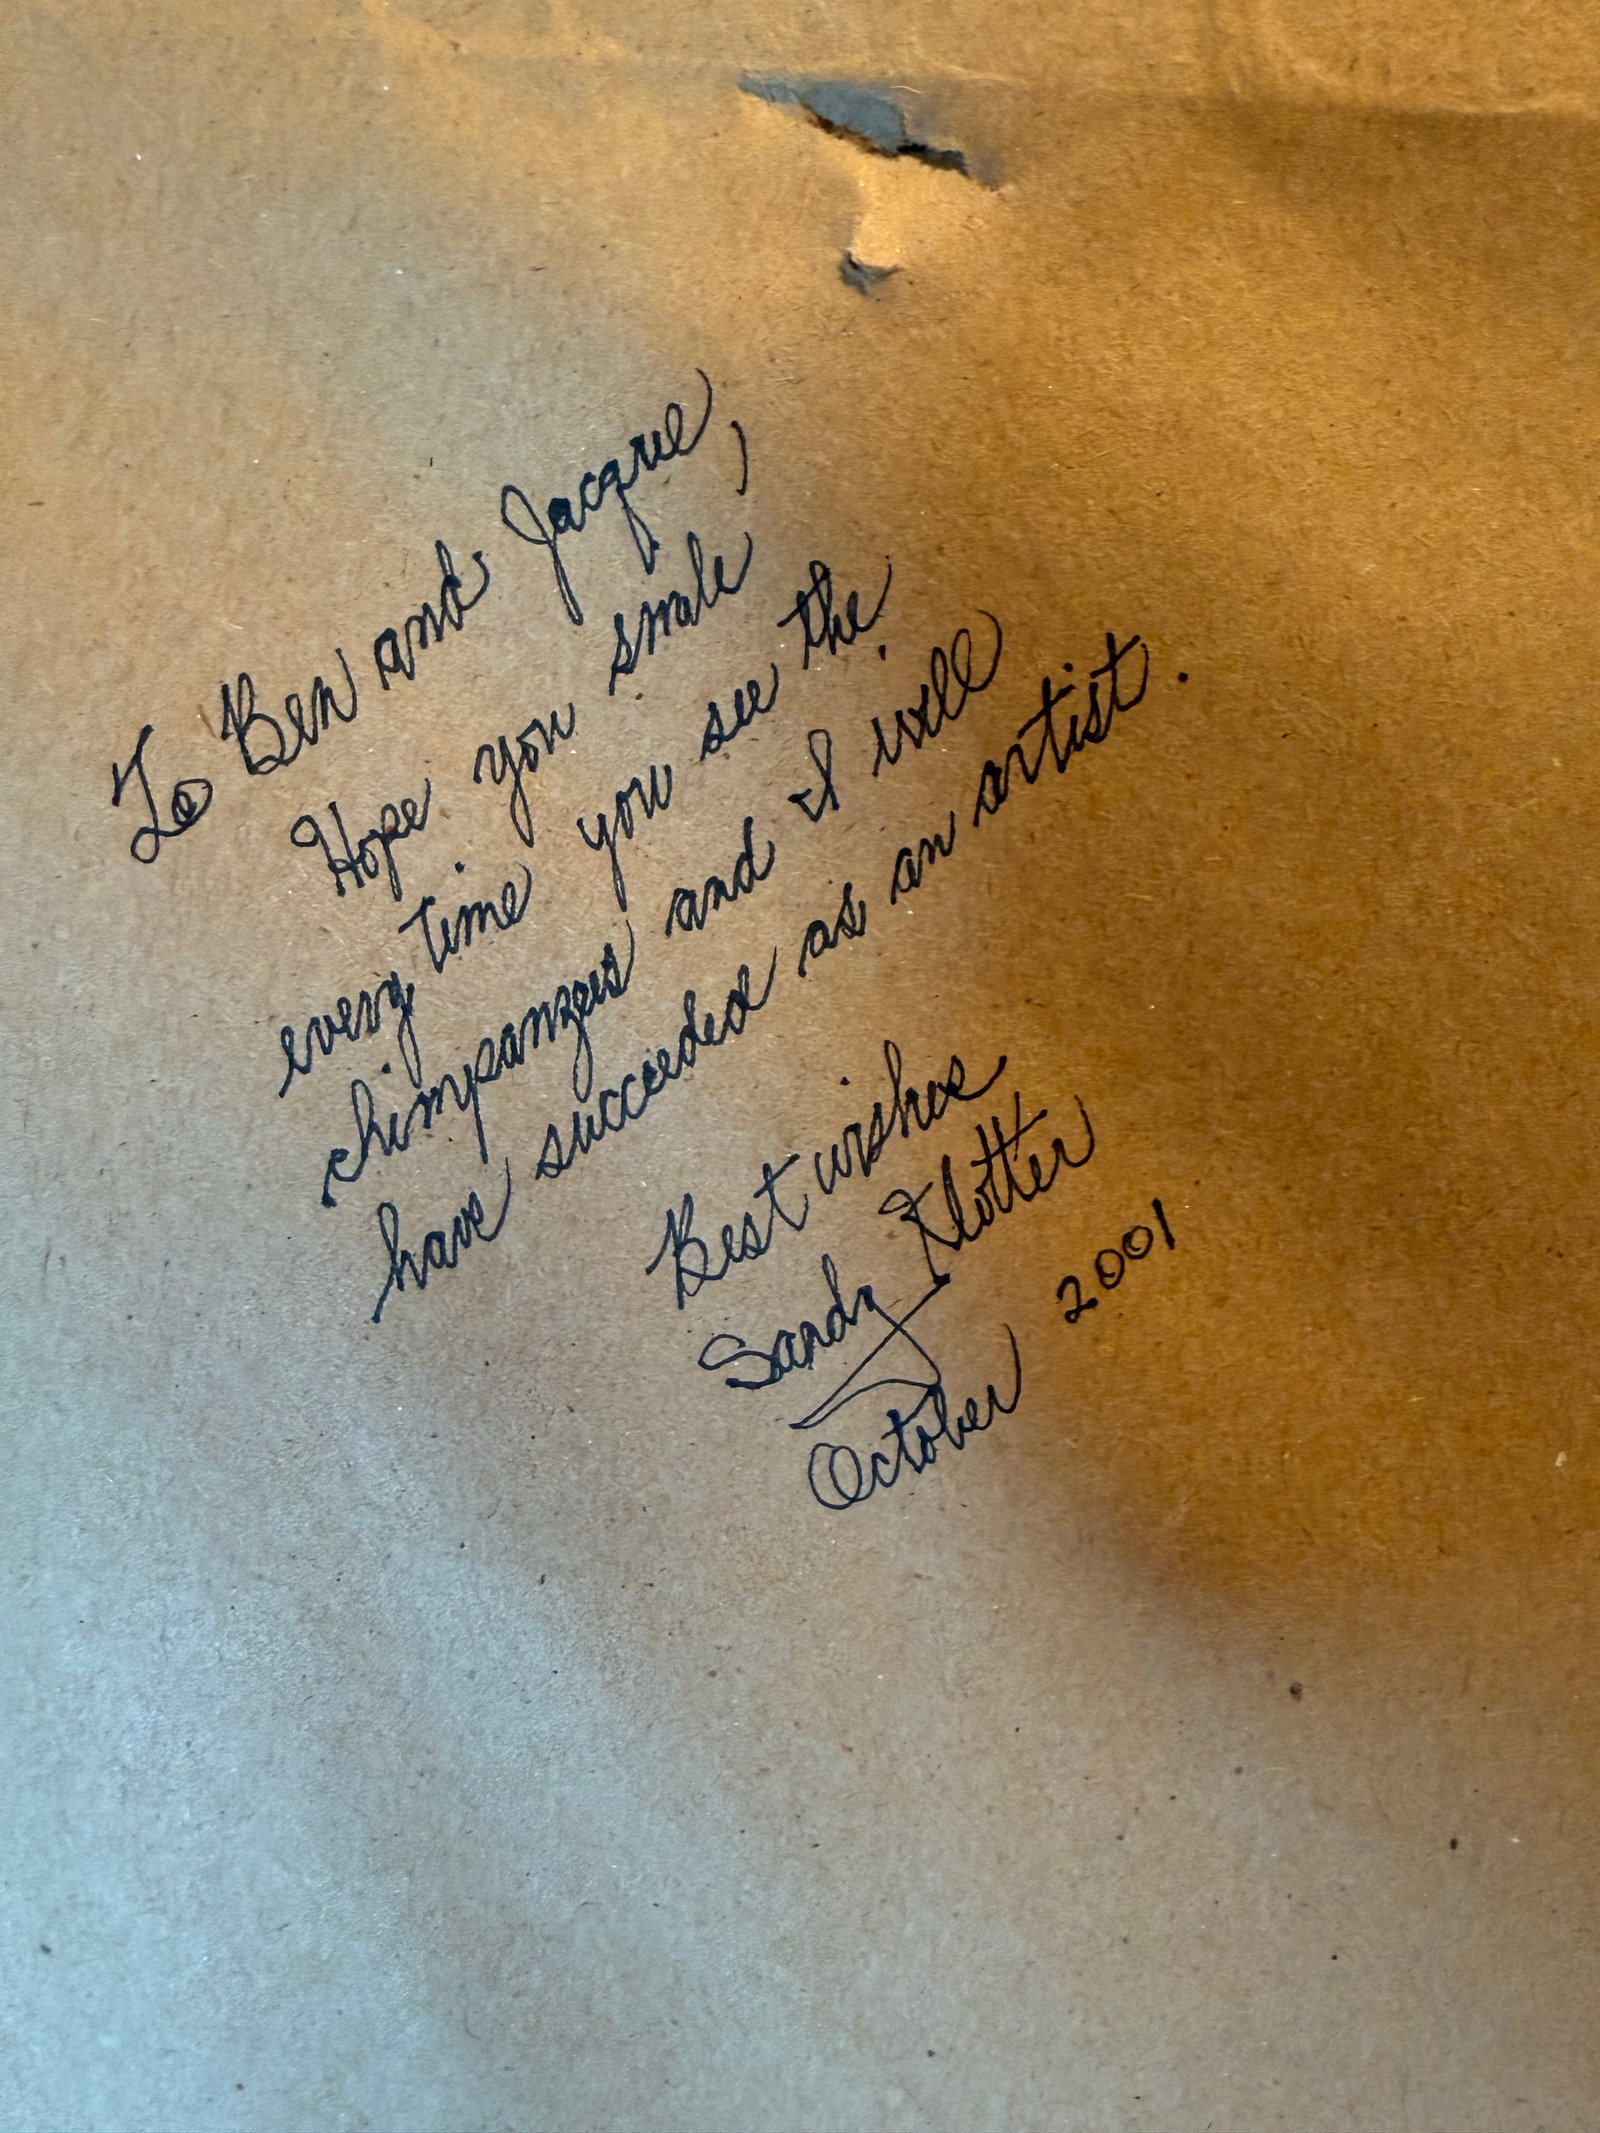 To Ben and Jacque,
Hope you smile
every time you see the
chimpanzees and I will
have succeeded as an artist.
Best wishes
Sandy Klotter
October 2001